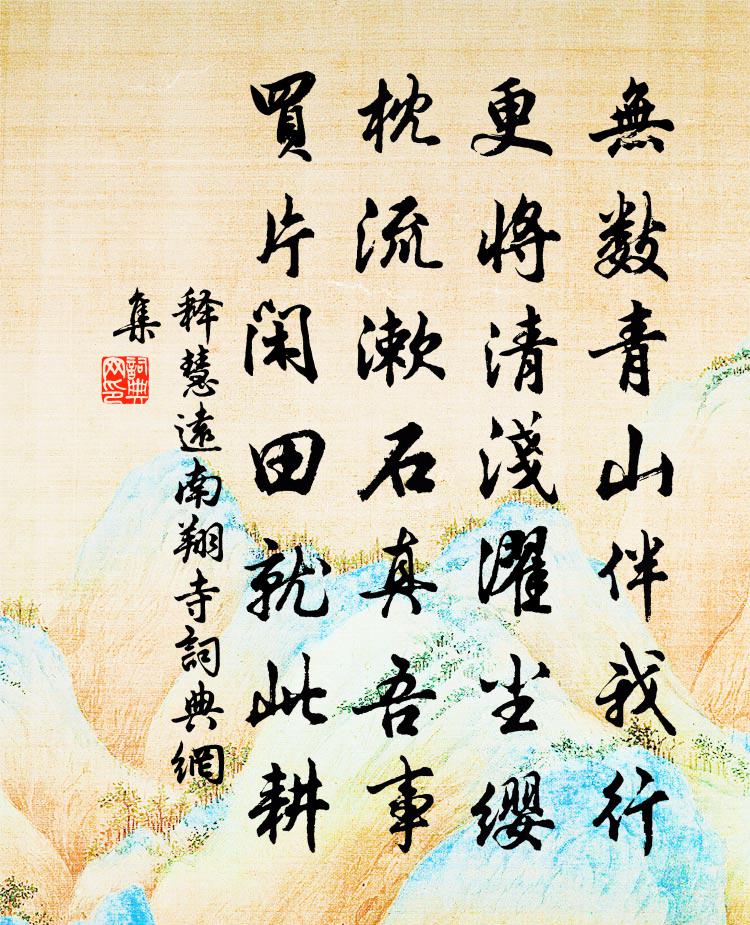 無数青山伴我行
更將清淺濯尘纓
枕流漱石真吾事
買片閑田就此耕
释慧遠南翔寺詞典網
集
詞典
网印